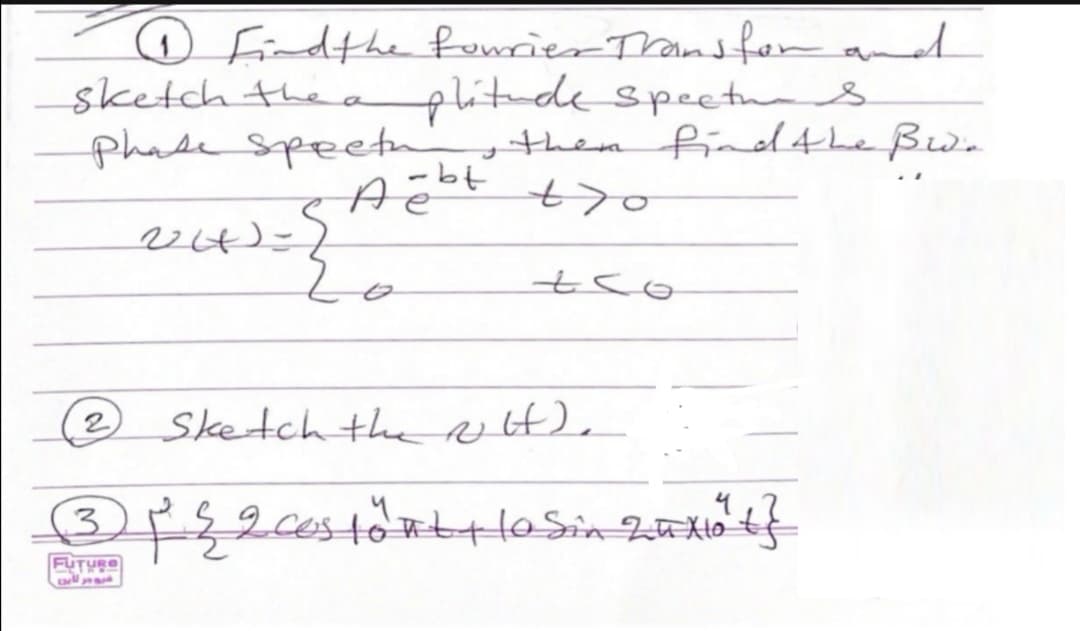 ① Find the fourier Transfom and
sketch the amplitude spectrum &
phase spectrum, them find the Bw.
v(t) = { A e^-bt t>0
0 t<0
② Sketch the v(t).
③ F{2 cos 10^4 πt + 10 Sin 2π×10^4 t}
FUTURE